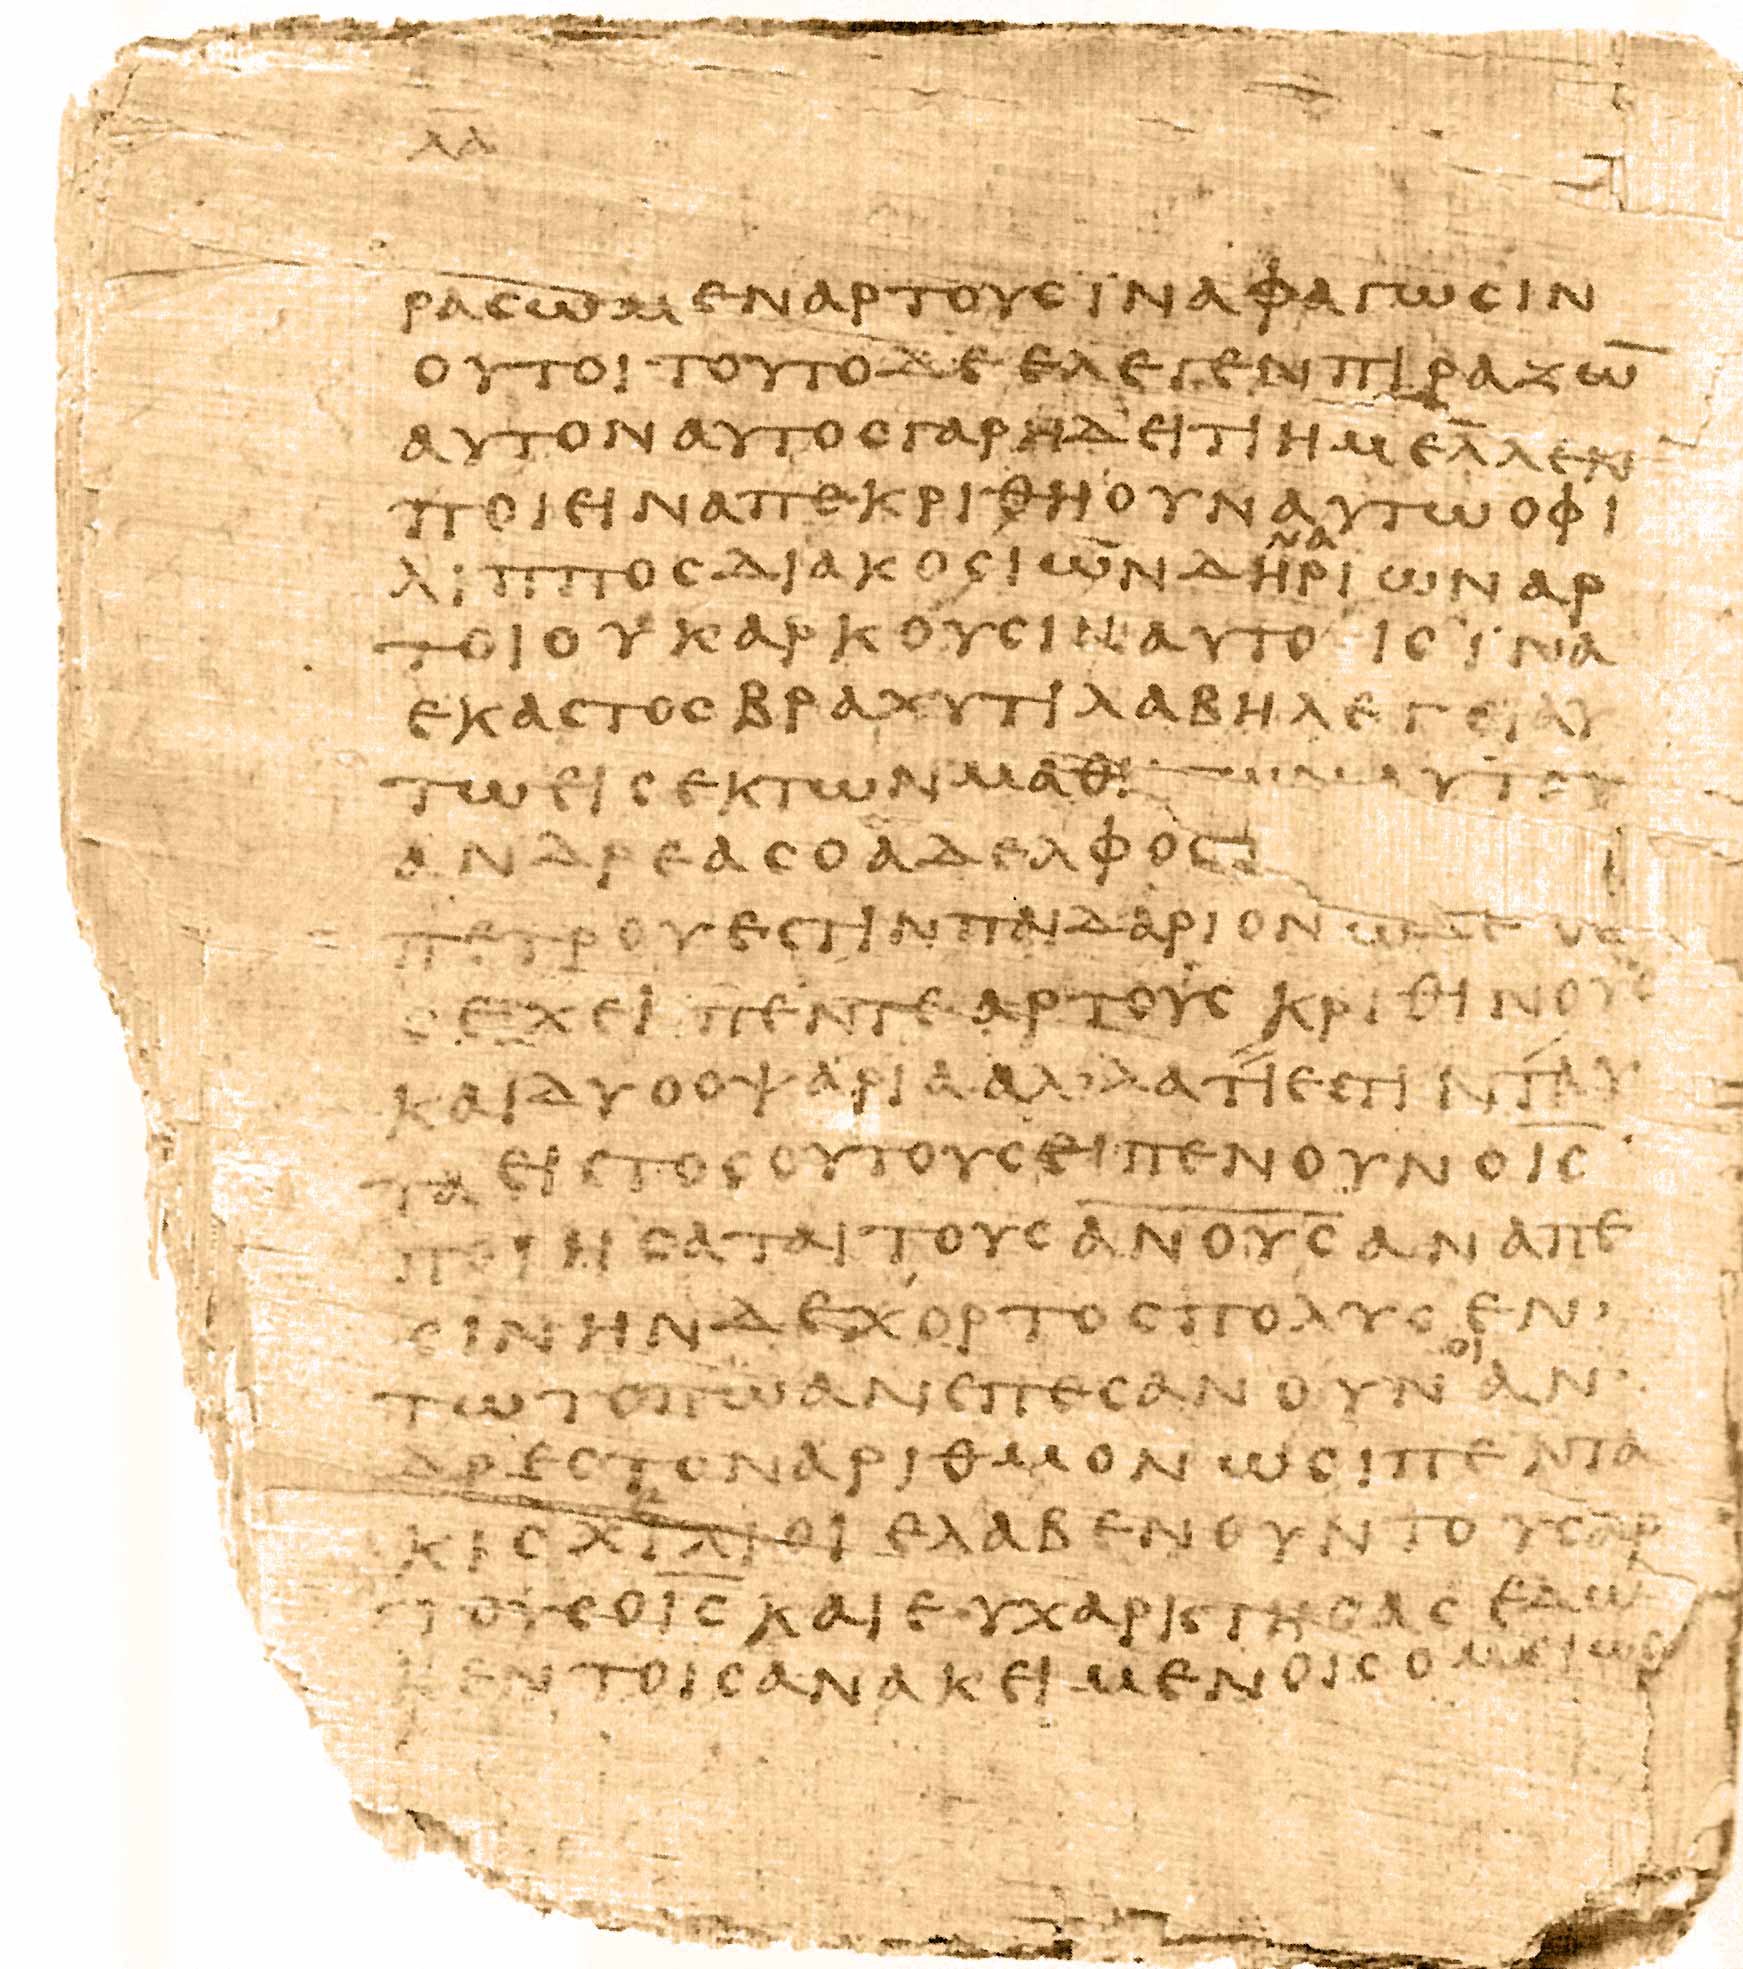 λα
ραсωμεναρτουсϊναφαγωсιν
ουτοι·τουτοδεελεγενπιραζω̅
αυτοναυτοсγαρηδειτιημελλεν
ποιειναπεκριθηουναυτωοφι
λιπποсδιακοсιωνδη`να´ριωναρ
τοιουκαρκουсιναυτοιсϊνα
εκαστοсβραχυτιλαβηλεγειαυ
τωειсεκτωνμαθητωναυτου
ανδρεαсοαδελφοс
πετρουεсτινπαιδαριονωδεοс
εχειπεντεαρτουсκριθινουс
καιδυοοψαριααλλατιεсτινταυ
ταειсτοсουτουсειπενουνοι̅с̅
ποιηсαταιτουсα̅ν̅ο̅υ̅с̅αναπε
сινηνδεχορτοсπολυсεν
τωτοπωανεπεсανουν`οι´αν
δρεсτοναριθμονωсιπεντα
κιсχιλιοιελαβενουντουсαρ
τουсοι̅с̅καιευχαριсτηсαсεδω
κεντοιсανακειμενοιсομειωс